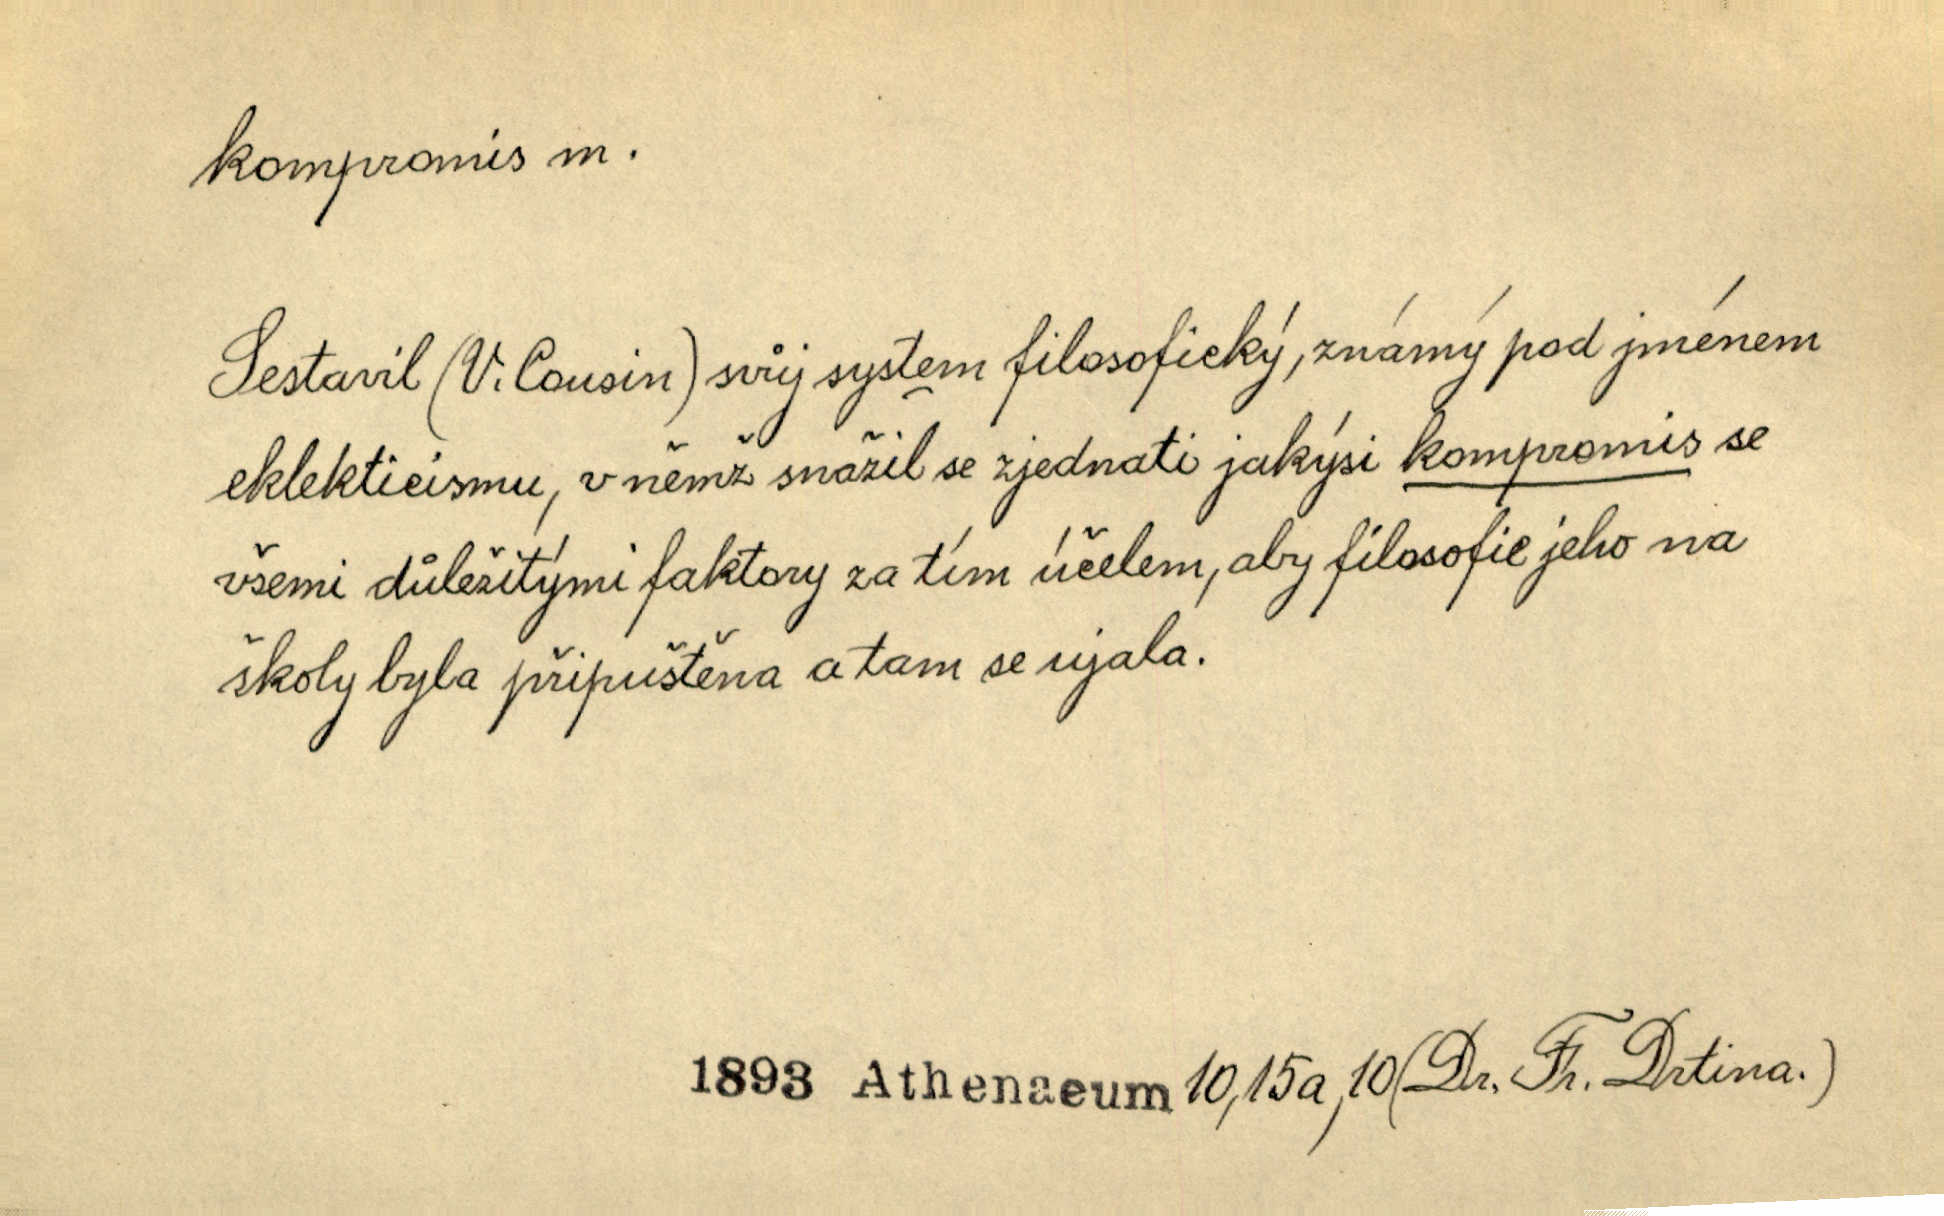 kompromis m.
Sestavil (V. Cousin) svůj system filosofický, známý pod jménem
eklekticismu, v němž snažil se zjednati jakýsi kompromis se
všemi důležitými faktory za tím účelem, aby filosofie jeho na
školy byla připuštěna a tam se ujala.
1893 Athenaeum 10,15a,10 (Dr. Fr. Drtina.)